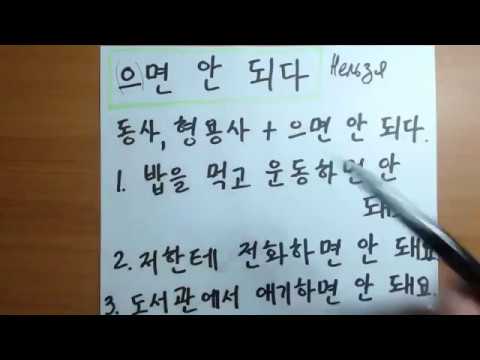 (으)면 안 되다 Нельзя
동사, 형용사 + 으면 안 되다.
1. 밥을 먹고 운동하면 안
돼요
2. 저한테 전화하면 안 돼요
3. 도서관에서 얘기하면 안 돼요.